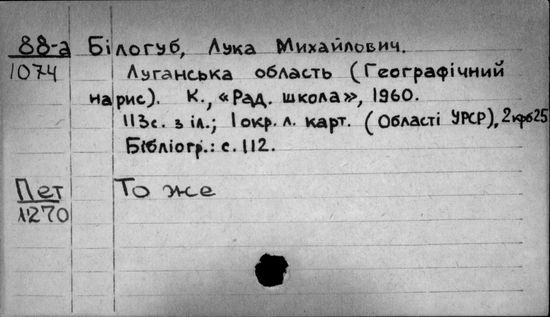 88-а Білогуб, Лука Михайлович.
1074 Луганська область (Географічний
нарис). К., «Рад. школа», 1960.
113с. з іл.; 1 окр. л. карт. (Області УРСР), 2крб25
Бібліогр.: с. 112.
Пет То же
1270